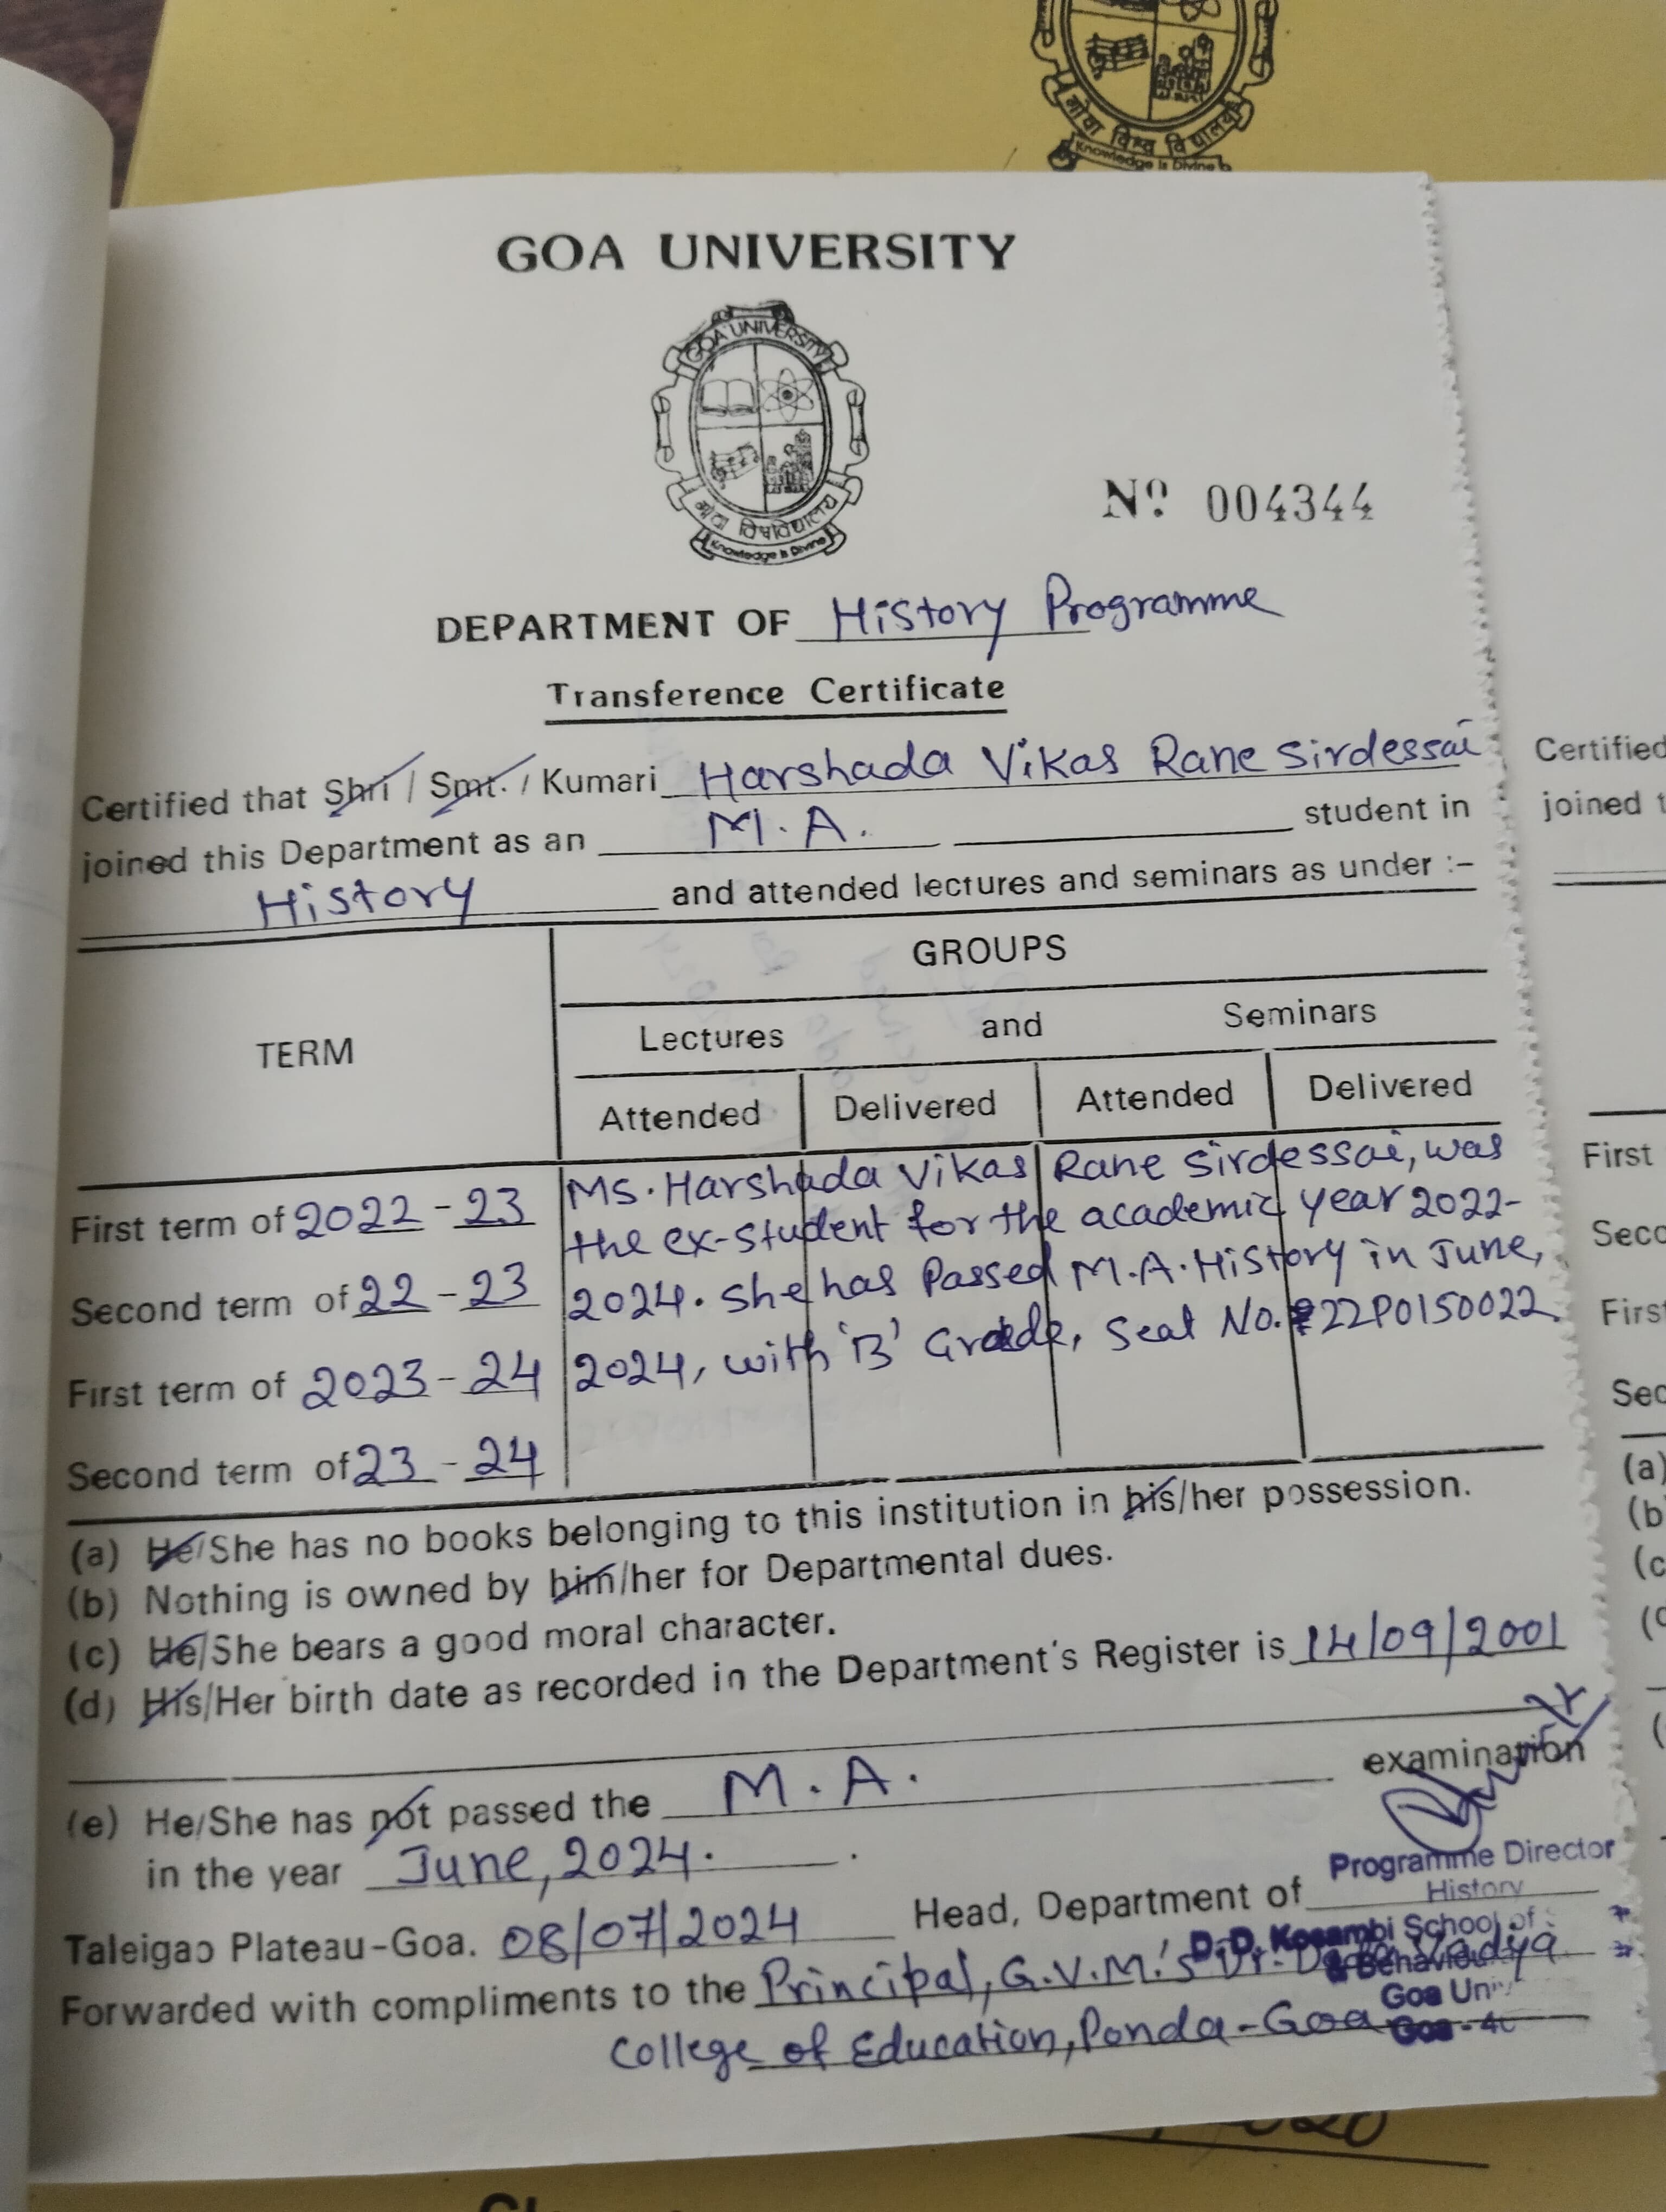 गोवा विश्व विद्यालय
Knowledge is Divine
GOA UNIVERSITY
GOA UNIVERSITY
गोवा विश्वविद्यालय
Knowledge is Divine
Nº 004344
DEPARTMENT OF History Programme
Transference Certificate
Certified that Shri / Smt. / Kumari Harshada Vikas Rane Sirdessai
joined this Department as an M.A. student in
History and attended lectures and seminars as under :-
GROUPS
TERM
Lectures and Seminars
Attended Delivered Attended Delivered
First term of 2022-23
Second term of 22-23
First term of 2023-24
Second term of 23-24
Ms. Harshada Vikas Rane Sirdessai, was
the ex-student for the academic year 2022-
2024. She has Passed M.A. History in June,
2024, with 'B' Grade, Seat No. 22P0150022.
(a) He/She has no books belonging to this institution in his/her possession.
(b) Nothing is owned by him/her for Departmental dues.
(c) He/She bears a good moral character.
(d) His/Her birth date as recorded in the Department's Register is 14/09/2001
(e) He/She has not passed the M.A. examination
in the year June, 2024.
Programme Director
History
Taleigao Plateau-Goa. 08/07/2024 Head, Department of
D.D. Kosambi School of
& Behaviou
Goa Uni
Goa - 40
Forwarded with compliments to the Principal, G.V.M.'s Dr. Dada Vadya
College of Education, Ponda-Goa
Certified
joined t
First
Seco
First
Sec
(a)
(b
(c